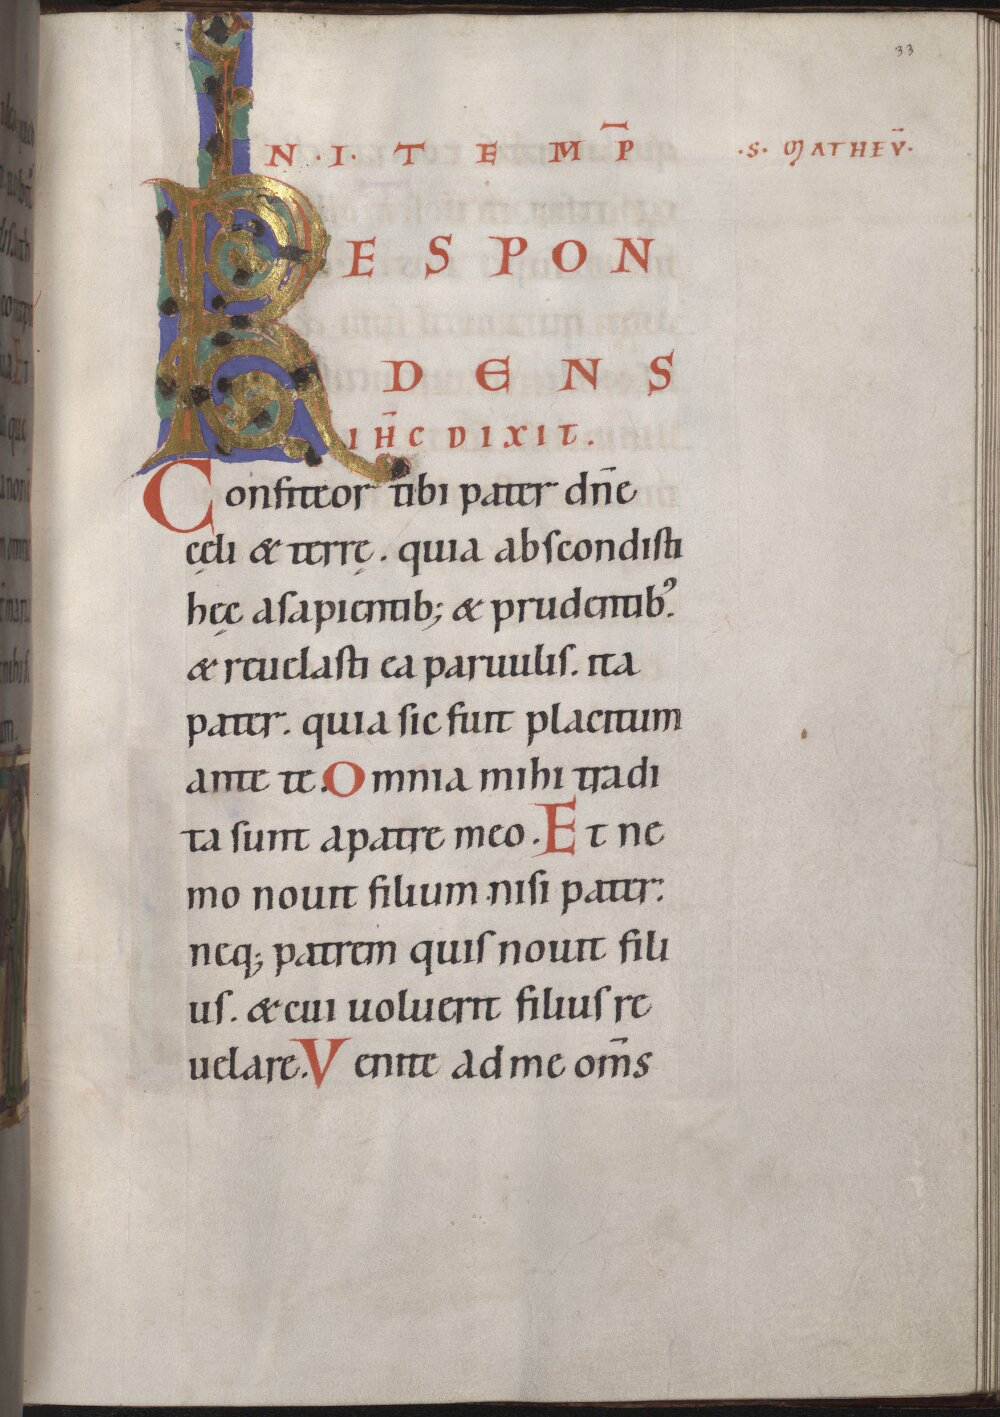 33
IN · I · TEMP̄
· S · MATHEV̄ ·
RESPON
DENS
IH̄C DIXIT.
Confiteor tibi pater dn̄e
cęli & terrę. quia abscondisti
hęc asapientib; & prudentib⁹.
& reuelasti ea paruulis. ita
pater. quia sic fuit placitum
ante te. Omnia mihi tradi
ta sunt apatre meo. Et ne
mo nouit filium nisi pater.
neq; patrem quis nouit fili
us. & cui uoluerit filius re
uelare. Venite ad me om̄s